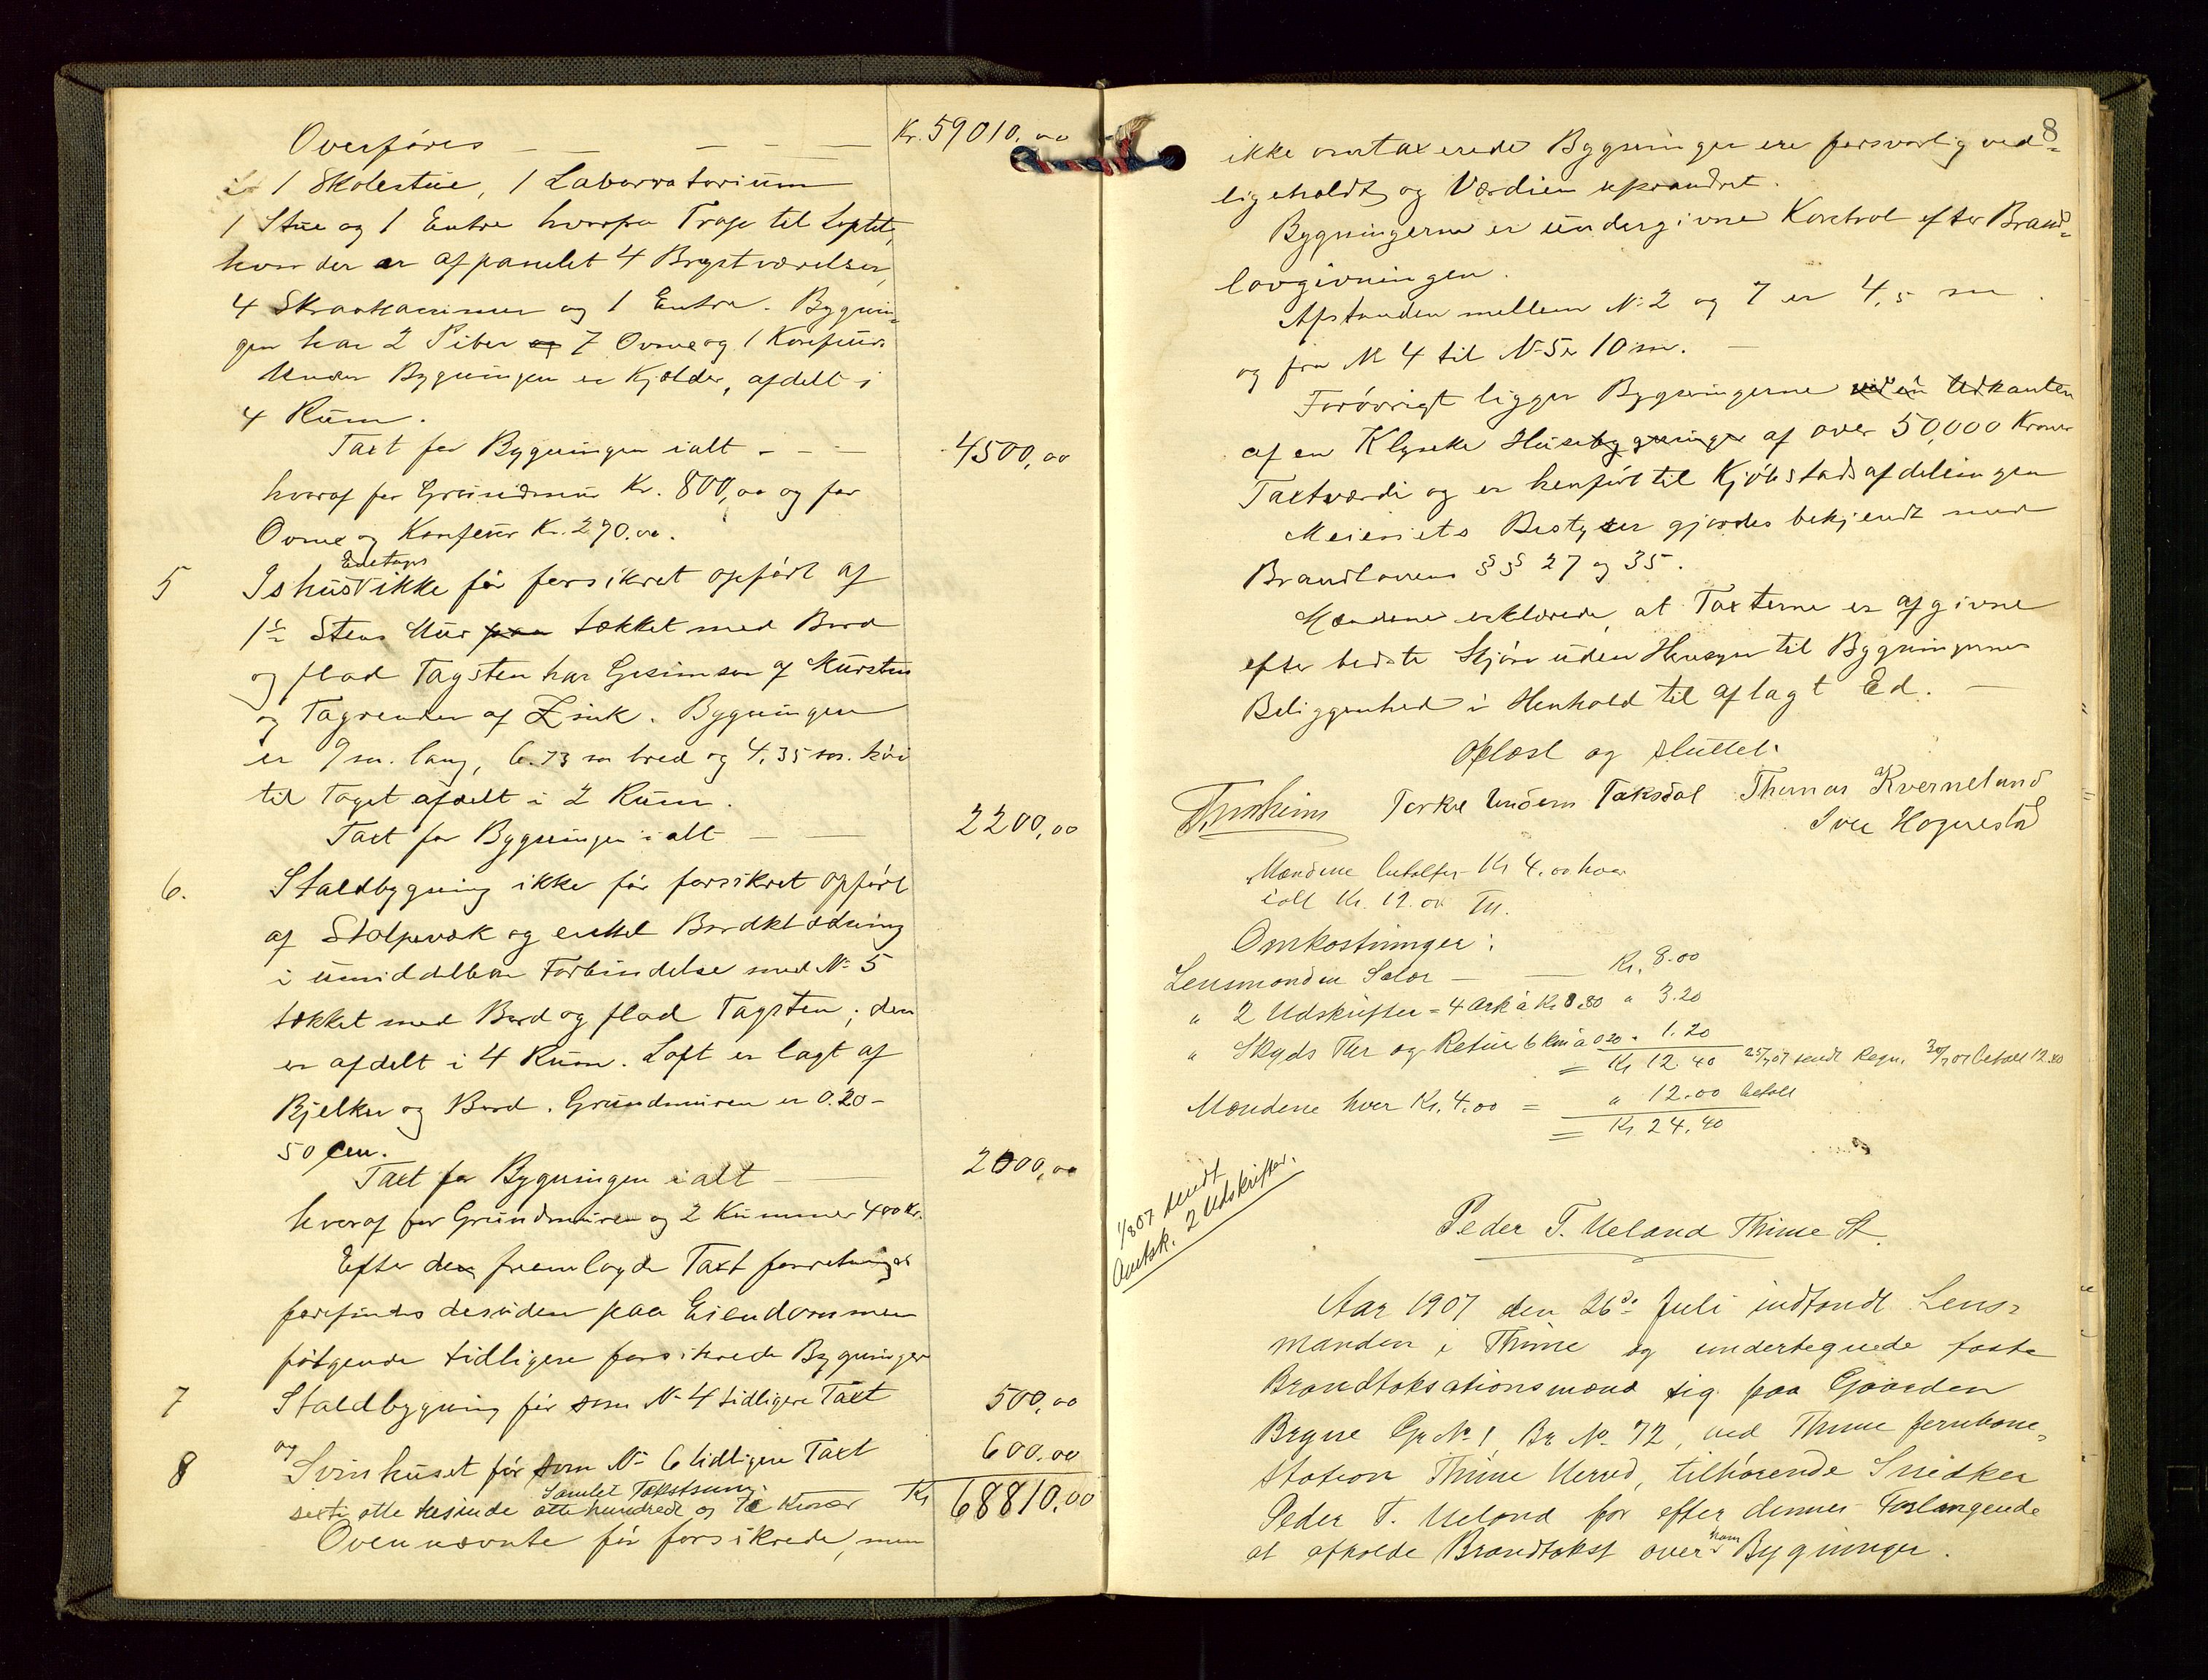 Overføres — — — — — Kr. 59010.00
1 Skolestue, 1 Laboratorium
1 Stue og 1 Entre hvorfra Trap til Loftet,
hvor der er afpanelet 4 Brystværelser,
4 Skraakammer og 1 Entre. Bygnin-
gen har 2 Piber og 7 Ovne og 1 Komfur
Under Bygningen er Kjælder, afdelt i
4 Rum.
Taxt for Bygningen ialt - - — 4500,00
hvoraf for Grundmur Kr. 800,00 og for
Ovne og Komfeur Kr. 270.00.
Enetages
5 Ishus ikke før forsikret opført af
1½ Stens Mur paa tækket med Bord
og flad Tagsten har Gesimser af Mursten
og Tagrender af Zink. Bygningen
er 9 m. lang, 6.73 m bred og 4,35 m. høi
til Taget afdelt i 2 Rum.
Taxt for Bygningen ialt — — 2200,00
6. Staldbygning ikke før forsikret opført
af Stolpevæk og enkel Bordklædning
i umiddelbar Forbindelse med No 5
tækket med Bord og flad Tagsten; den
er afdelt i 4 Rum. Loft er lagt af
Bjelker og Bord. Grundmuren er 0.20-
50 cm.
Taxt for Bygningen ialt — — 2000,00
hvoraf for Grundmuren og 2 Kummer 400 Kr.
Efter den fremlagde Taxt forretninger
forefindes desuden paa Eiendommen
følgende tidligere forsikrede Bygninger
7 Staldbygning før som No 4 tidligere Taxt 500,00
og
8 Svinhuset før som No 6 tidligere Taxt 600.00
Samlet Takstsum:
seksti otte tusinde otte hundrede og Ti Kroner Kr 68810,00
Ovennævnte før forsikrede, men
8
ikke omtaxerede Bygninger ere forsvarlig ved=
ligeholdt og Værdien uforandret.
Bygningerne er undergivne Kontrol efter Brand=
lovgivningen.
Afstanden mellem No 2 og 7 er 4,5 m.
og fra No 4 til No 5 er 10 m. —
Forøvrigt ligger Bygningerne ved en Udkanten
af en Klynke Husebygninger af over 50,000 Kroner
Taxtværdi og er henført til Kjøbstadsafdelingen
Meieriets Bestyrer gjordes bekjendt med
Brandlovens §§ 27 og 35.
Mændene erklærede, at Taxterne er afgivne
efter bedste Skjøn uden Hensyn til Bygningernes
Beliggenhed i Henhold til aflagt Ed. —
Oplæst og sluttet.
Torkel Undem Taksdal Thomas Kverneland
Iver Hognestad
Mændene betaltes Kr 4.00 hver
ialt Kr. 12.00 Th.
Omkostninger:
Lensmanden Salær — — Kr. 8.00
" 2 Udskrifter = 4 Ark à Kr 0.80 " 3.20
" Skyds Fler og Retur 6 km à 0.20 " 1.20
= Kr 12.40 25/7 07 sendt Regn. 30/7 07 betalt 12.40
Mændene hver Kr. 4.00 = " 12.00 betalt
= Kr 24.40
1/8 07 sendt
Amtsk. 2 Udskrifter.
Peder T. Ueland Thime St.
Aar 1907 den 26de Juli indfandt Lens-
manden i Thime og undertegnede faste
Brandtaksationsmænd sig paa Gaarden
Bryne Gr No. 1, Br. No. 72, ved Thime Jernbane-
station Thime Herred, tilhørende Snedker
Peder T. Ueland for efter dennes Forlangende
at afholde Brandtakst over hans Bygninger.